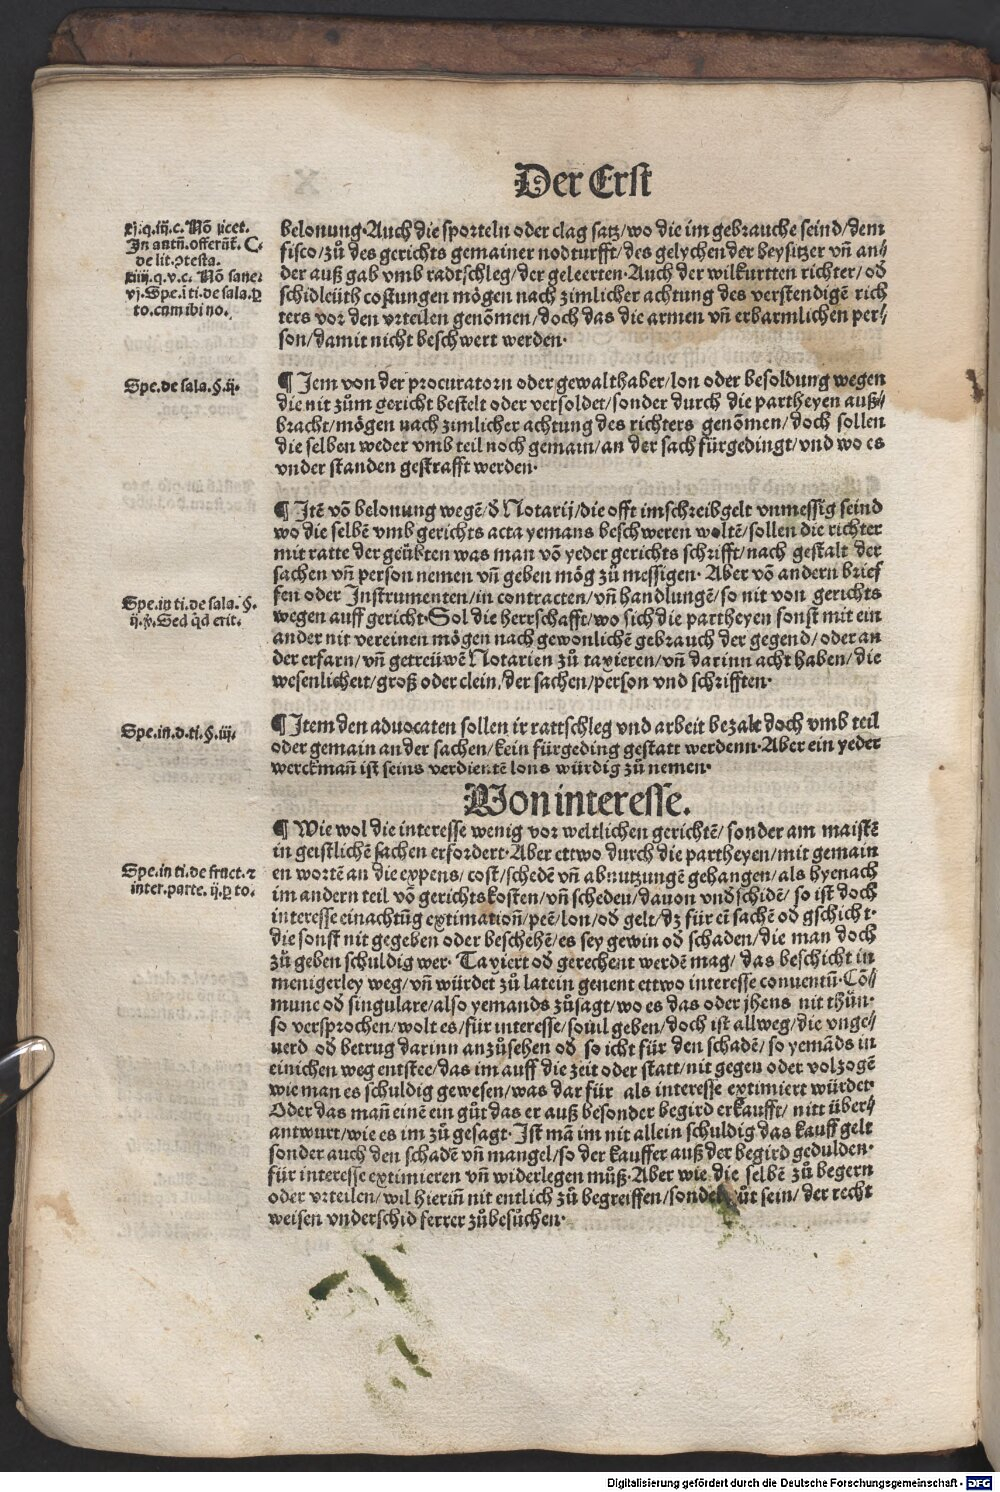 Der Erst
xj.q.iij.c. Nõ licet.
In autñ. offerũt. C.
de lit. ↄtesta.
xiiij.q.v.c. Nõ sane.
vj. Spe. i ti. de sala. ꝑ
to. cum ibi no.
belonung. Auch die sporteln oder clag satz/ wo die im gebrauche seind/ dem
fisco/ zů des gerichts gemainer nodturfft/ des gelychen der beysitzer vñ an⸗
der auß gab vmb radtschleg/ der geleerten. Auch der wilkurtten richter/ od
schidleüth costungen mögen nach zimlicher achtung des verstendigẽ rich
ters vor den vrteilen genõmen/ doch das die armen vñ erbarmlichen per⸗
son/ damit nicht beschwert werden.
Spe. de sala. §. ij.
¶ Jem von der procuratorn oder gewalthaber/ lon oder besoldung wegen
die nit zům gericht bestelt oder versoldet/ sonder durch die partheyen auß⸗
bracht/ mögen nach zimlicher achtung des richters genõmen/ doch sollen
die selben weder vmb teil noch gemain/ an der sach fürgedingt/ vnd wo es
vnder standen gestrafft werden.
¶ Jtẽ võ belonung wegẽ/ đ Notarij/ die offt im schreibgelt vnmessig seind
wo die selbẽ vmb gerichts acta yemans beschweren woltẽ/ sollen die richter
mit ratte der geübten was man võ yeder gerichts schrifft/ nach gestalt der
sachen vñ person nemen vñ geben mög zů messigen. Aber võ andern brief
Spe. in ti. de sala. §.
ij. ꝟ. Sed qđ erit.
fen oder Instrumenten/ in contracten/ vñ handlungẽ/ so nit von gerichts
wegen auff gericht. Sol die herrschafft/ wo sich die partheyen sonst mit ein
ander nit vereinen mögen nach gewonlichẽ gebrauch der gegend/ oder an
der erfarn/ vñ getreüwẽ Notarien zů taxieren/ vñ darinn acht haben/ die
wesenlicheit/ groß oder clein/ der sachen/ person vnd schrifften.
Spe. in. d. ti. §. iij.
¶ Item den aduocaten sollen ir rattschleg vnd arbeit bezalt doch vmb teil
oder gemain an der sachen/ kein fürgeding gestatt werdenn. Aber ein yeder
werckmañ ist seins verdientẽ lons würdig zů nemen.
Von interesse.
¶ Wie wol die interesse wenig vor weltlichen gerichtẽ/ sonder am maistẽ
in geistlichẽ sachen erfordert. Aber ettwo durch die partheyen/ mit gemain
Spe. in ti. de fruct. ⁊
inter. parte. ij. ꝑ to.
en wortẽ an die expens/ cost/ schedẽ vñ abnutzungẽ gehangen/ als hyenach
im andern teil võ gerichts kosten/ vñ scheden/ dauon vndschidẽ/ so ist doch
interesse ein achtũg extimationñ/ peẽ/ lon/ od gelt/ dz für eĩ sachẽ od gschicht.
die sonst nit gegeben oder beschehẽ/ es sey gewin od schaden/ die man doch
zů geben schuldig wer. Taxiert od gerechent werdẽ mag/ das beschicht in
menigerley weg/ vñ würdet zů latein genent ettwo interesse conuentũ. Cõ⸗
mune od singulare/ also yemands zůsagt/ wo es das oder jhens nit thůn.
so versprochen/ wolt es/ für interesse/ souil geben/ doch ist allweg/ die vnge⸗
uerd od betrug darinn anzůsehen od so icht für den schadẽ/ so yemãds in
einichen weg entstee/ das im auff die zeit oder statt/ nit gegen oder volzogẽ
wie man es schuldig gewesen/ was dar für als interesse extimiert würdet.
Oder das mañ einẽ ein gůt das er auß besonder begird erkaufft/ nitt über⸗
antwurt/ wie es im zů gesagt. Ist mã im nit allein schuldig das kauff gelt
sonder auch den schadẽ vñ mangel/ so der kauffer auß der begird gedulden.
für interesse extimieren vñ widerlegen můß. Aber wie die selbẽ zů begern
oder vrteilen/ wil hieriñ nit entlich zů begreiffen/ sonder sein/ der recht
weisen vnderschid ferrer zůbesůchen.
Digitalisierung gefördert durch die Deutsche Forschungsgemeinschaft - DFG